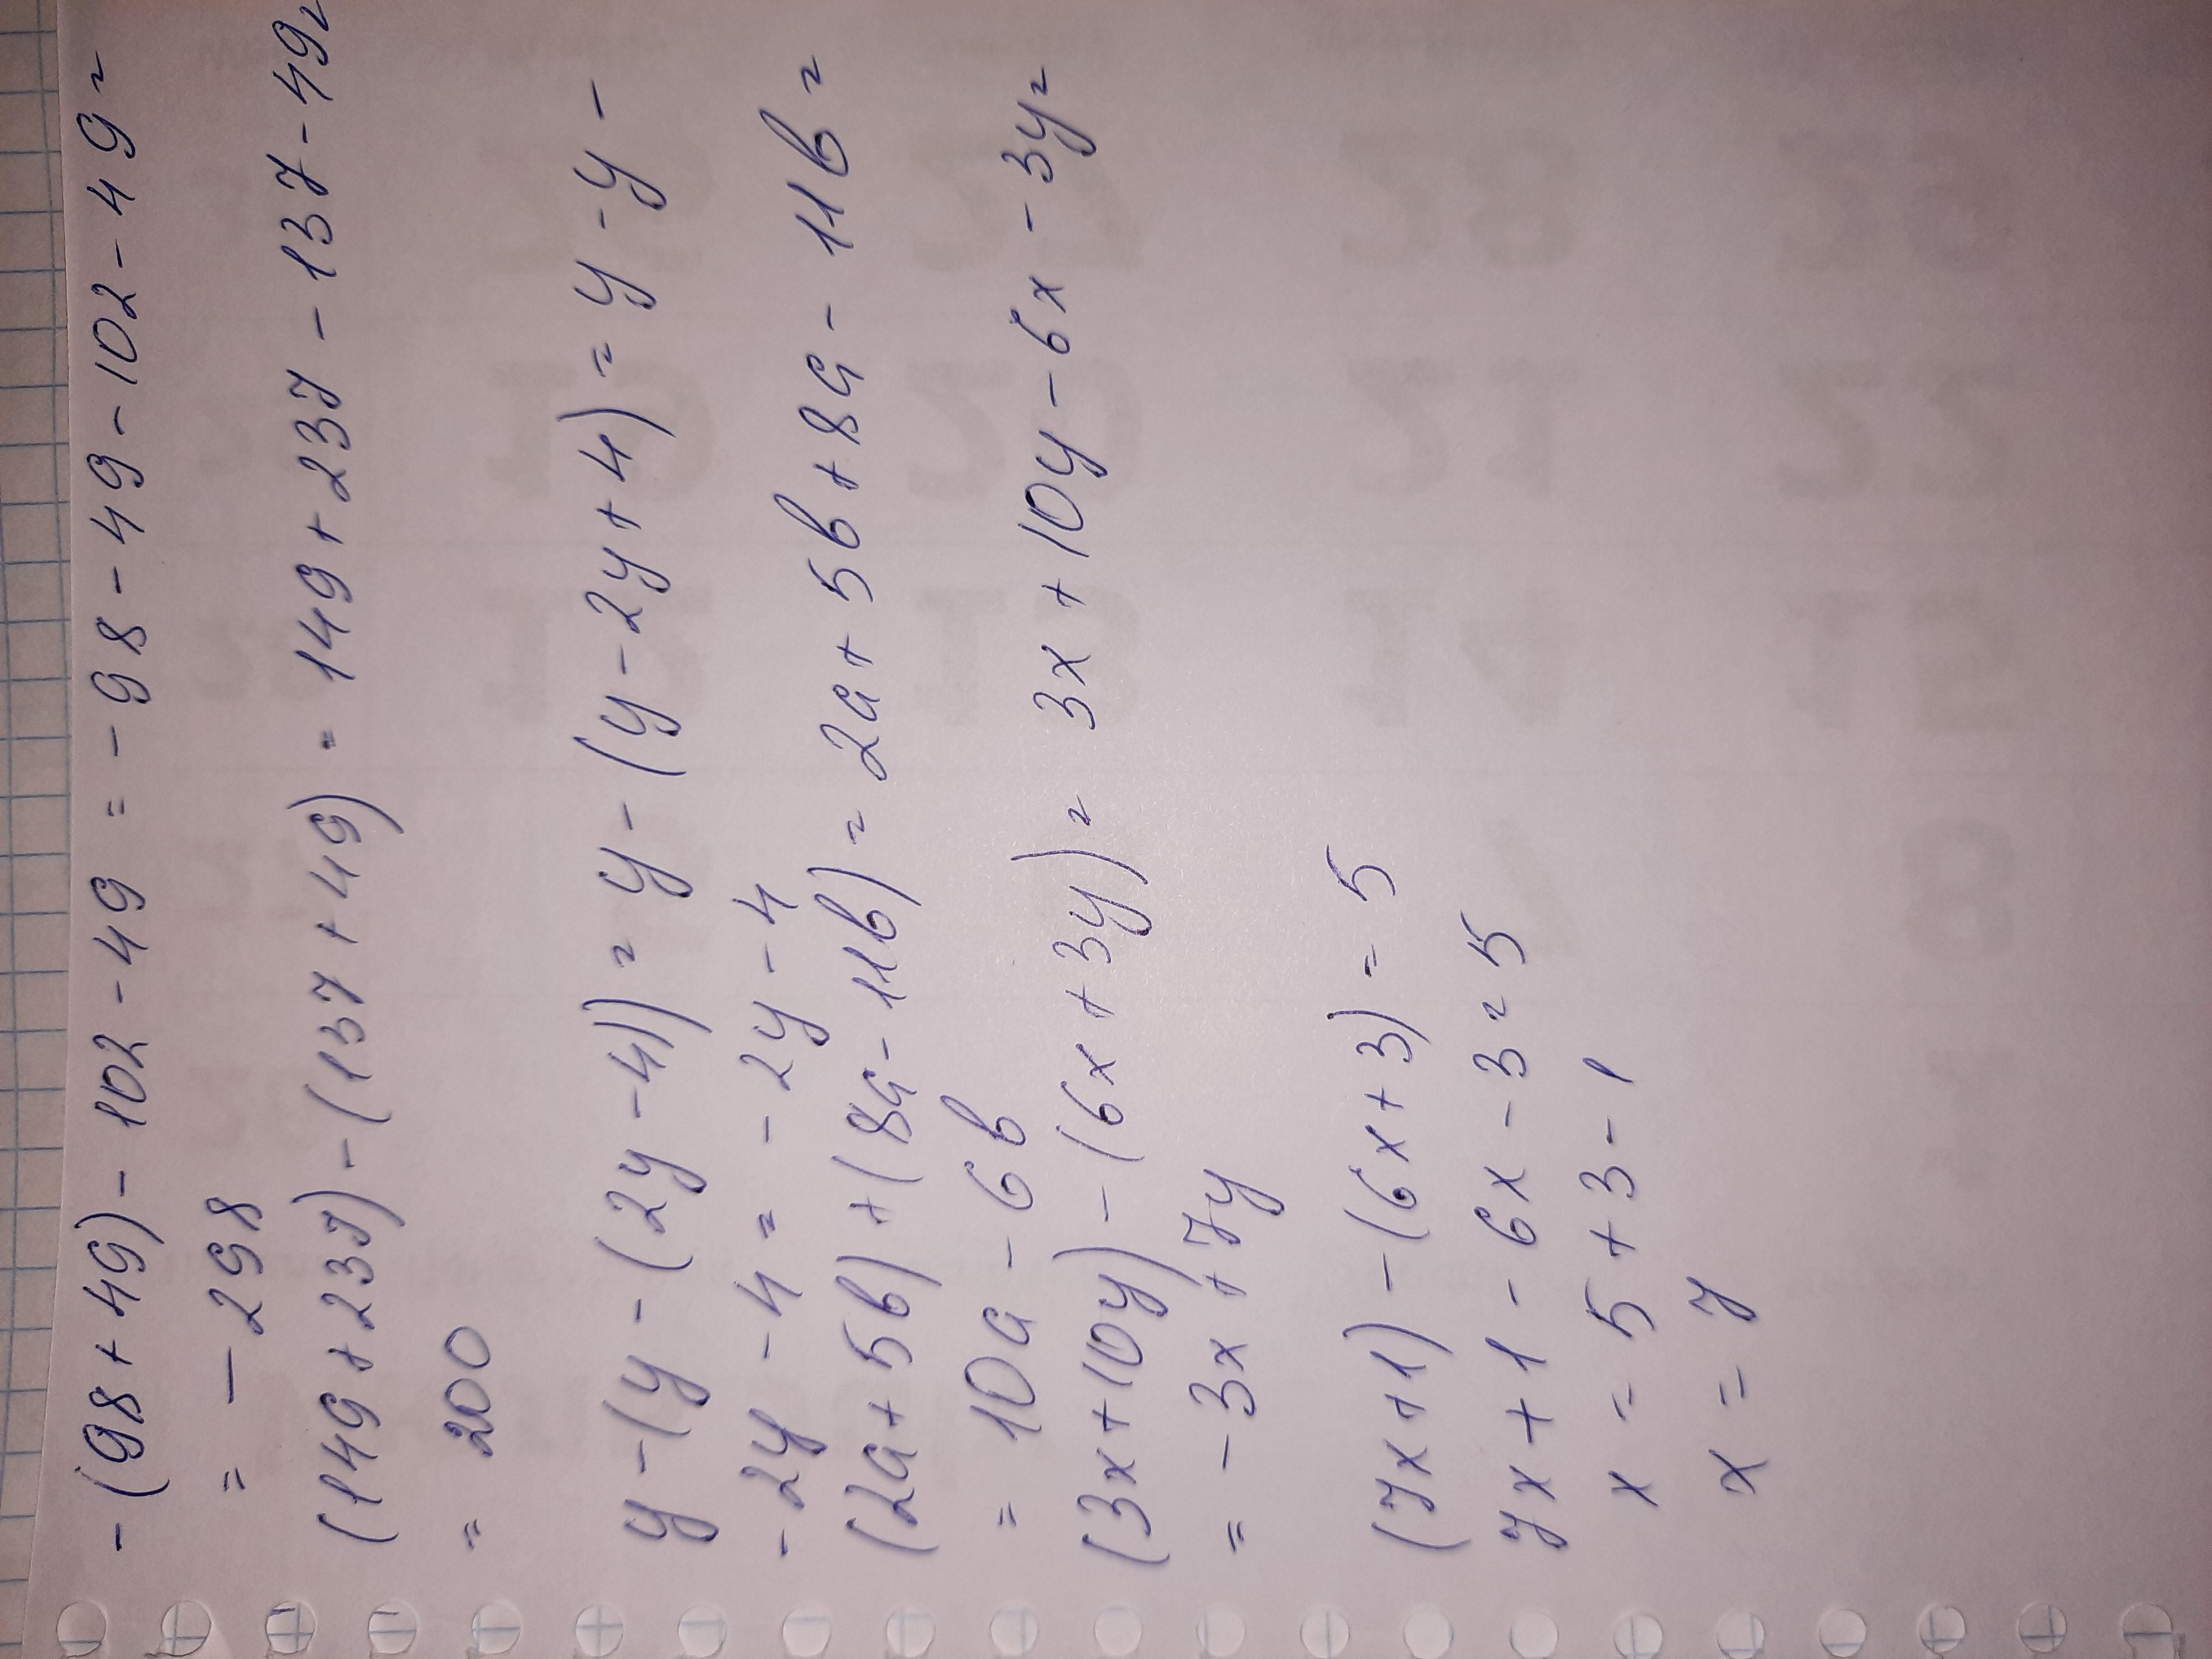 -(98+49)-102-49=-98-49-102-49=
=-298
(149+237)-(137+49)=149+237-137-49=
=200
y-(y-(2y-4))=y-(y-2y+4)=y-y-
-2y-4=-2y-4
(2a+5b)+(8a-11b)=2a+5b+8a-11b=
=10a-6b
(3x+10y)-(6x+3y)=3x+10y-6x-3y=
=-3x+7y
(7x+1)-(6x+3)=5
7x+1-6x-3=5
x=5+3-1
x=7